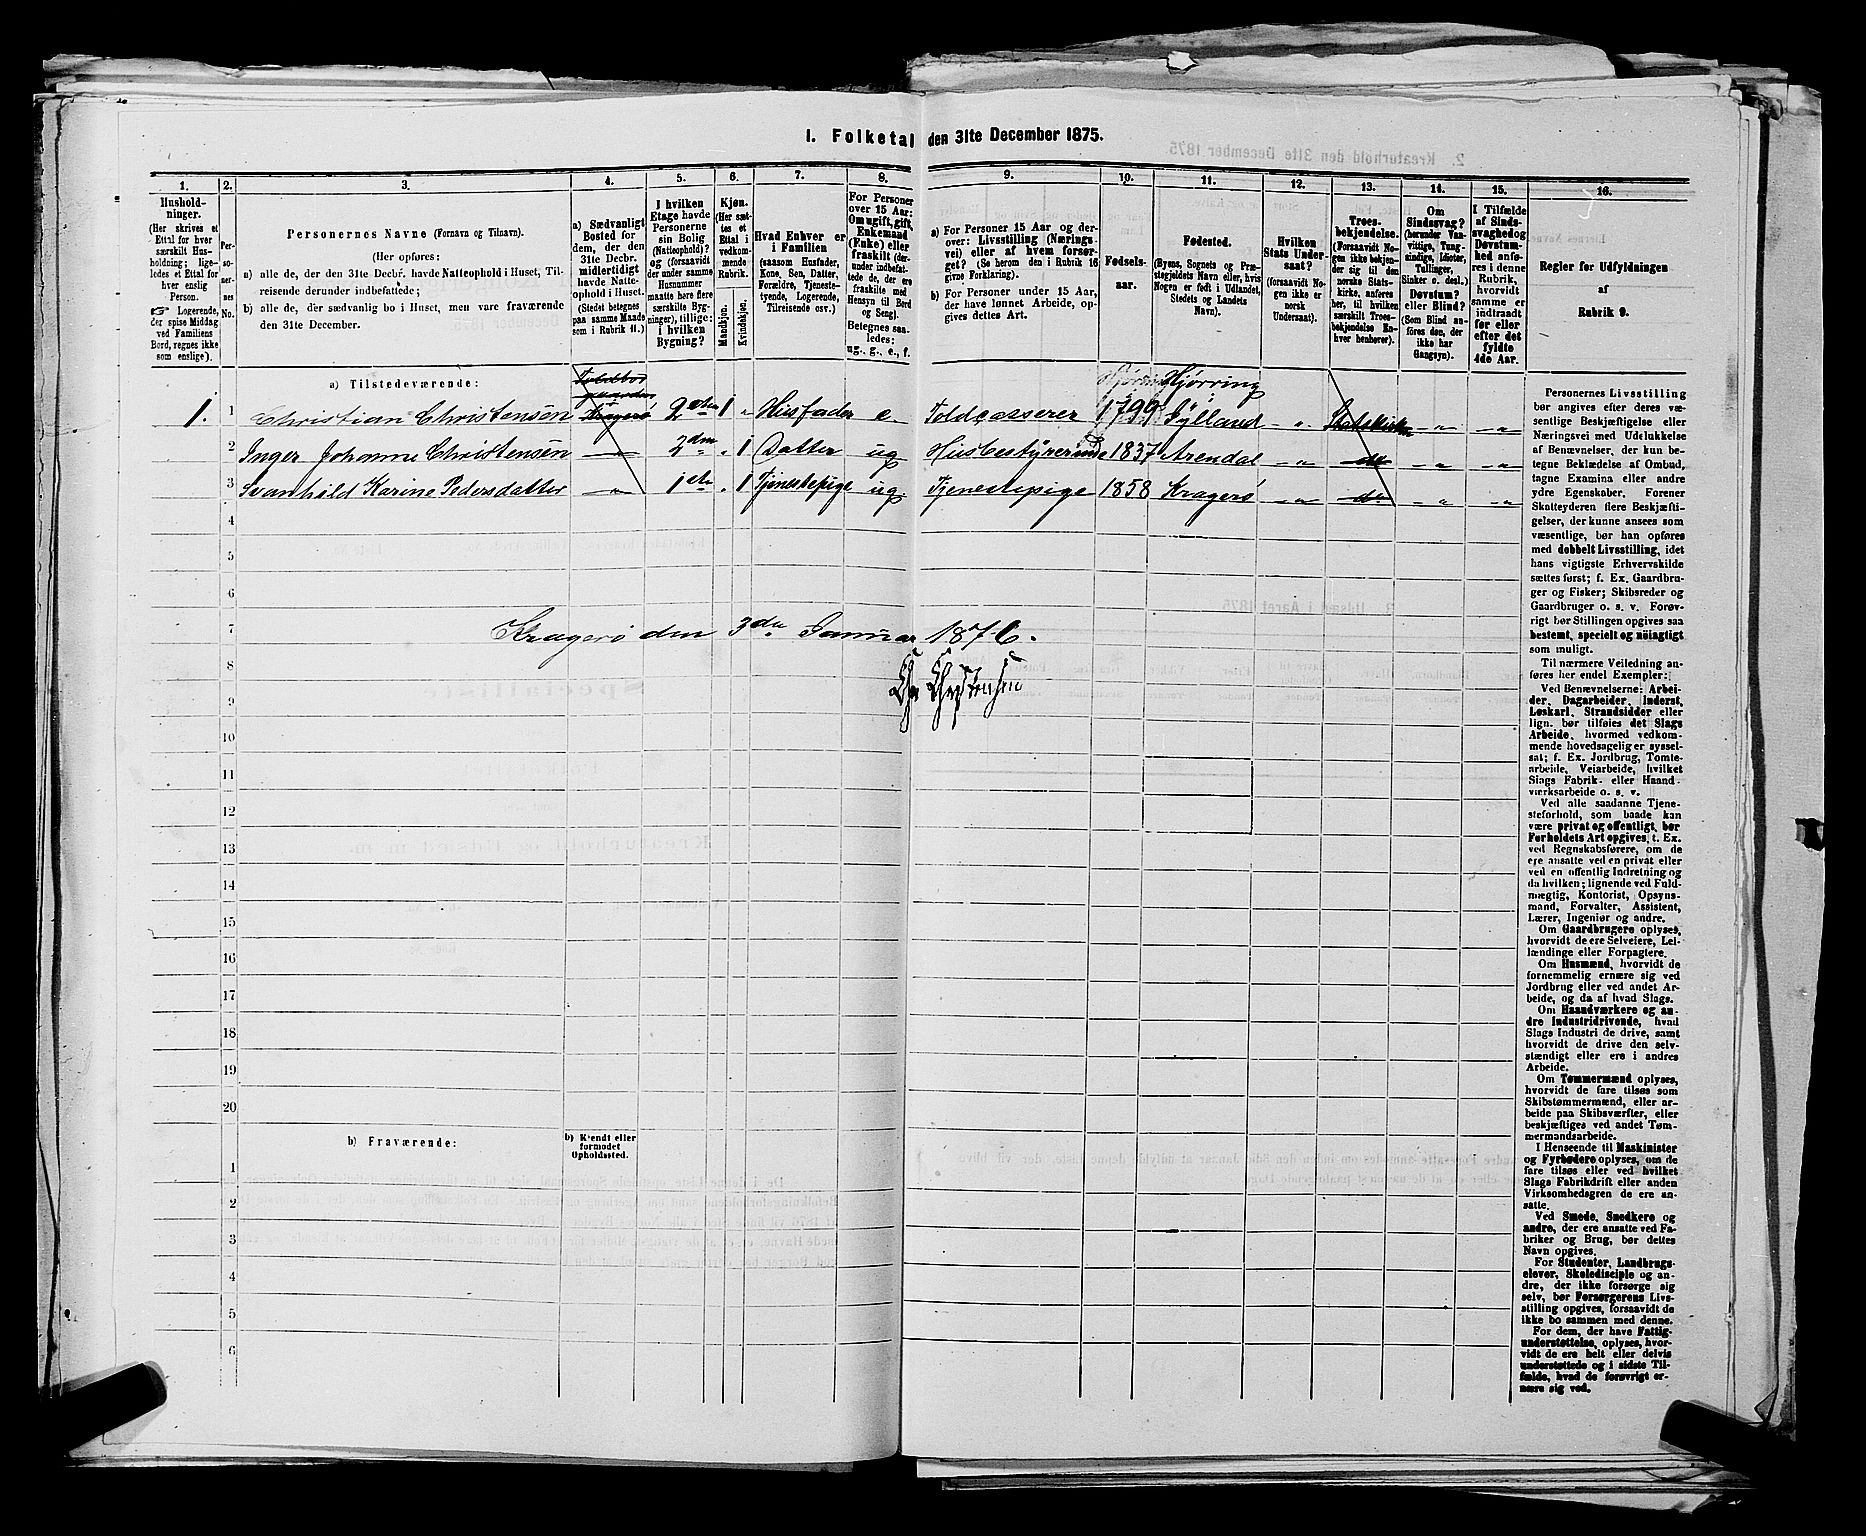 1. Folketal den 31te December 1875.
1. 2. 3. 4. 5. 6. 7. 8. 9. 10. 11. 12. 13. 14. 15. 16.
Hushold-
ninger.
(Her skrives et
Ettal for hver
særskilt Hus-
holdning; lige-
ledes et Ettal for
hver enslig
Person.
☞ Logerende,
der spise Middag
ved Familiens
Bord, regnes ikke
som enslige).
Per-
so-
ner-
nes
No.
Personernes Navne (Fornavn og Tilnavn).
(Her opføres:
a) alle de, der den 31te Decbr. havde Natteophold i Huset, Til-
reisende derunder indbefattede;
b) alle de, der sædvanlig bo i Huset, men vare fraværende
den 31te December.
a) Sædvanligt
Bosted for
dem, der den
31te Decbr.
midlertidigt
havde Natte-
ophold i Huset.
(Stedet betegnes
paa samme Maade
som i Rubrik 11.)
I hvilken
Etage havde
Personerne
sin Bolig
(Natteophold)?
og (forsaavidt
der under samme
Husnummer
maatte høre flere
særskilte Byg-
ninger), tillige:
i hvilken
Bygning?
Kjøn.
(Her sæt-
tes et
Ettal i
vedkom-
mende
Rubrik.
Mandkjøn.
Kvindekjøn.
Hvad Enhver er
i Familien
(saasom Husfader,
Kone, Søn, Datter,
Forældre, Tjeneste-
tyende, Logerende,
Tilreisende osv.)
For Personer
over 15 Aar:
Om ugift, gift,
Enkemand
(Enke) eller
fraskilt (der-
under indbefat-
tede de, der ere
fraskilte med
Hensyn til Bord
og Seng).
Betegnes saa-
ledes:
ug., g., e., f.
a) For Personer 15 Aar og der-
over: Livsstilling (Nærings-
vei) eller af hvem forsør-
get? (Se herom den i Rubrik 16
givne Forklaring).
b) For Personer under 15 Aar,
der have lønnet Arbeide, op-
gives dettes Art.
Fødsels-
aar.
Fødested.
(Byens, Sognets og Præ-
stegjeldets Navn eller, hvis
Nogen er født i Udlandet,
Stedets og Landets
Navn).
Hvilken
Stats Under-
saat?
(forsaavidt No-
gen ikke er
norsk
Undersaat).
Troes-
bekjendelse.
(Forsaavidt No-
gen ikke bekjen-
der sig til den
norske Stats-
kirke, anføres
her, til hvilken
særskilt Troes-
bekjendelse En-
hver henhører).
Om
Sindssvag?
(herunder Van-
vittige, Tung-
sindige, Idioter,
Tullinger,
Sinker o. desl.)
Døvstum?
eller Blind?
(Som Blind an-
føres den, der
ikke har
Gangsyn).
I Tilfælde
af Sinds-
svaghed og
Døvstum-
hed anfø-
res i denne
Rubrik,
hvorvidt
samme er
indtraadt
før eller
efter det
fyldte
4de Aar.
Regler for Udfyldningen
af
Rubrik 9.
a) Tilstedeværende:
Toldbod
gaarden
Kragerø
Hjørring Hjørring
1. 1 Christian Christensen 2den 1 " Husfader e. Toldcasserer 1799 Jylland - " - Statskirken - " - - " -
2 Inger Johanne Christensen - " - 2den " 1 Datter ug Husbestyrerinde 1837 Arendal - " - do - " - - " -
3 Svanhild Karine Pedersdatter - " - 1ste " 1 Tjenestepige ug. Tjenestepige 1858 Kragerø - " - do - " - - " -
4
5
6
7
Kragerø den 3die Januar 1876.
8
Chr Christensen
9
10
11
12
13
14
15
16
17
18
19
20
b) Fraværende:
b) Kjendt eller
formodet
Opholdssted.
1
2
3
4
5
6
Personernes Livsstilling
bør angives efter deres væ-
sentlige Beskjæftigelse eller
Næringsvei med Udelukkelse
af Benævnelser, der kun be-
tegne Beklædelse af Ombud,
tagne Examina eller andre
ydre Egenskaber. Forener
Skatteyderen flere Beskjæfti-
gelser, der kunne ansees som
væsentlige, bør han opføres
med dobbelt Livsstilling, idet
hans vigtigste Erhvervskilde
sættes først; f. Ex. Gaardbru-
ger og Fisker; Skibsreder og
Gaardbruger o. s. v. Forøv-
rigt bør Stillingen opgives saa
bestemt, specielt og nøiagtigt
som muligt.
Til nærmere Veiledning an-
føres her endel Exempler:
Ved Benævnelserne: Arbei-
der, Dagarbeider, Inderst,
Løskarl, Strandsidder eller
lign. bør tilføies det Slags
Arbeide, hvormed vedkom-
mende hovedsagelig er syssel-
sat; f. Ex. Jordbrug, Tomte-
arbeide, Veiarbeide, hvilket
Slags Fabrik- eller Haand-
værksarbeide o. s. v.
Ved alle saadanne Tjene-
steforhold, som baade kan
være privat og offentligt, bør
Forholdets Art opgives, t. Ex.
ved Regnskabsførere, om de
ere ansatte ved en privat eller
ved en offentlig Indretning og
da hvilken; lignende ved Fuld-
mægtig, Kontorist, Opsyns-
mand, Forvalter, Assistent,
Lærer, Ingeniør og andre.
Om Gaardbrugere oplyses,
hvorvidt de ere Selveiere, Lei-
lændinge eller Forpagtere.
Om Husmænd, hvorvidt de
fornemmelig ernære sig ved
Jordbrug eller ved andet Ar-
beide, og da af hvad Slags.
Om Haandværkere og an-
dre Industridrivende, hvad
Slags Industri de drive, samt
hvorvidt de drive den selv-
stændigt eller ere i andres
Arbeide.
Om Tømmermænd oplyses,
hvorvidt de fare tilsøs som
Skibstømmermænd, eller ar-
beide paa Skibsværfter, eller
beskjæftiges ved andet Tøm-
mermandsarbeide.
I Henseende til Maskinister
og Fyrbødere oplyses, om de
fare tilsøs eller ved hvilket
Slags Fabrikdrift eller anden
Virksomhedsgren de ere an-
satte.
Ved Smede, Snedkere og
andre, der ere ansatte ved Fa-
briker og Brug, bør dettes
Navn opgives.
For Studenter, Landbrugs-
elever, Skoledisciple og an-
dre, der ikke forsørge sig
selv, bør Forsørgerens Livs-
stilling opgives, forsaavidt de
ikke bo sammen med denne.
For dem, der have Fattig-
understøttelse, oplyses, hvor-
vidt de ere helt eller delvis
understøttede og i sidste Til-
fælde, hvad de forøvrigt er-
nære sig ved.